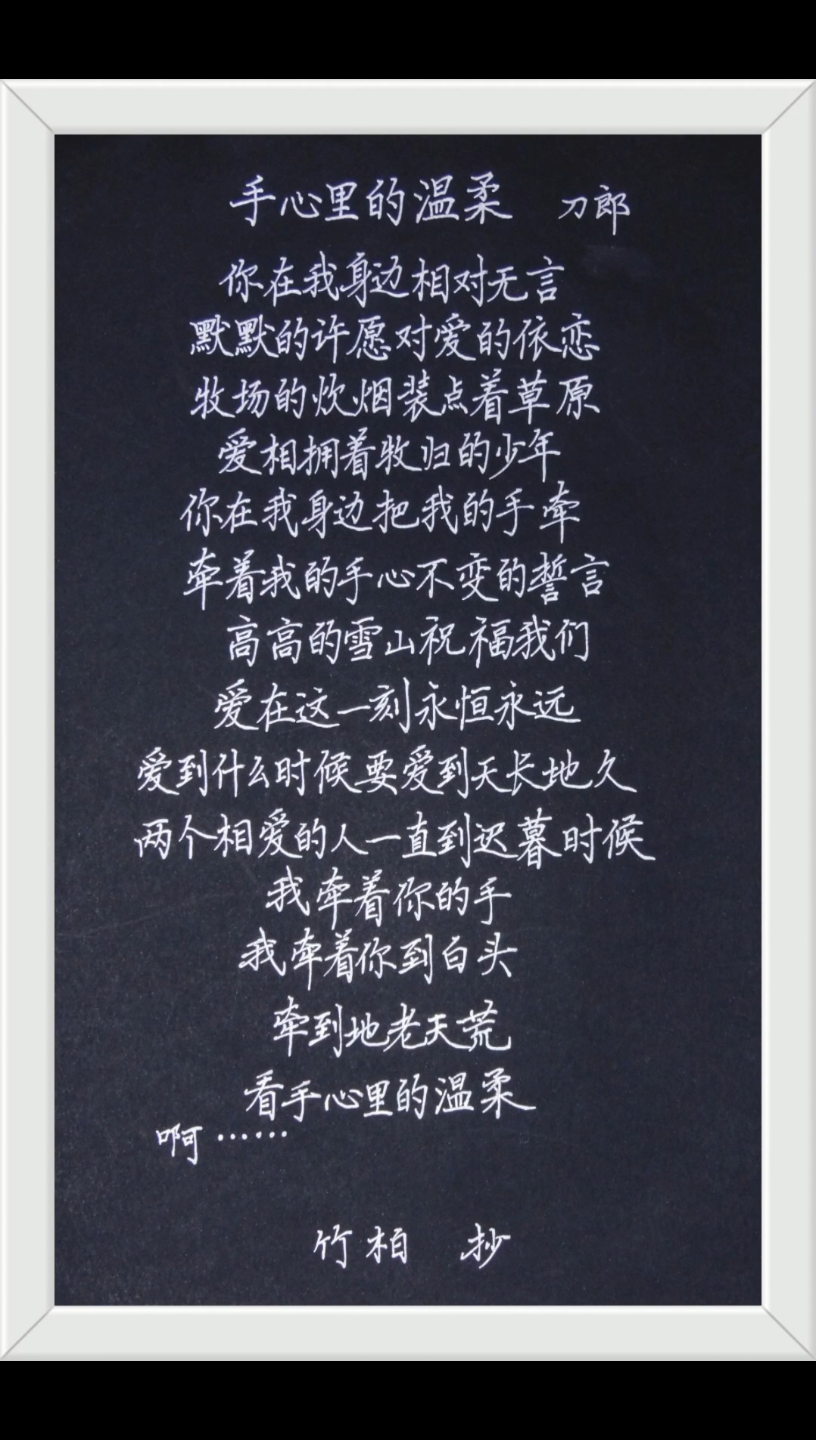 手心里的温柔 刀郎
你在我身边相对无言
默默的许愿对爱的依恋
牧场的炊烟装点着草原
爱相拥着牧归的少年
你在我身边把我的手牵
牵着我的手心不变的誓言
高高的雪山祝福我们
爱在这一刻永恒永远
爱到什么时候要爱到天长地久
两个相爱的人一直到迟暮时候
我牵着你的手
我牵着你到白头
牵到地老天荒
看手心里的温柔
啊……
竹柏 抄